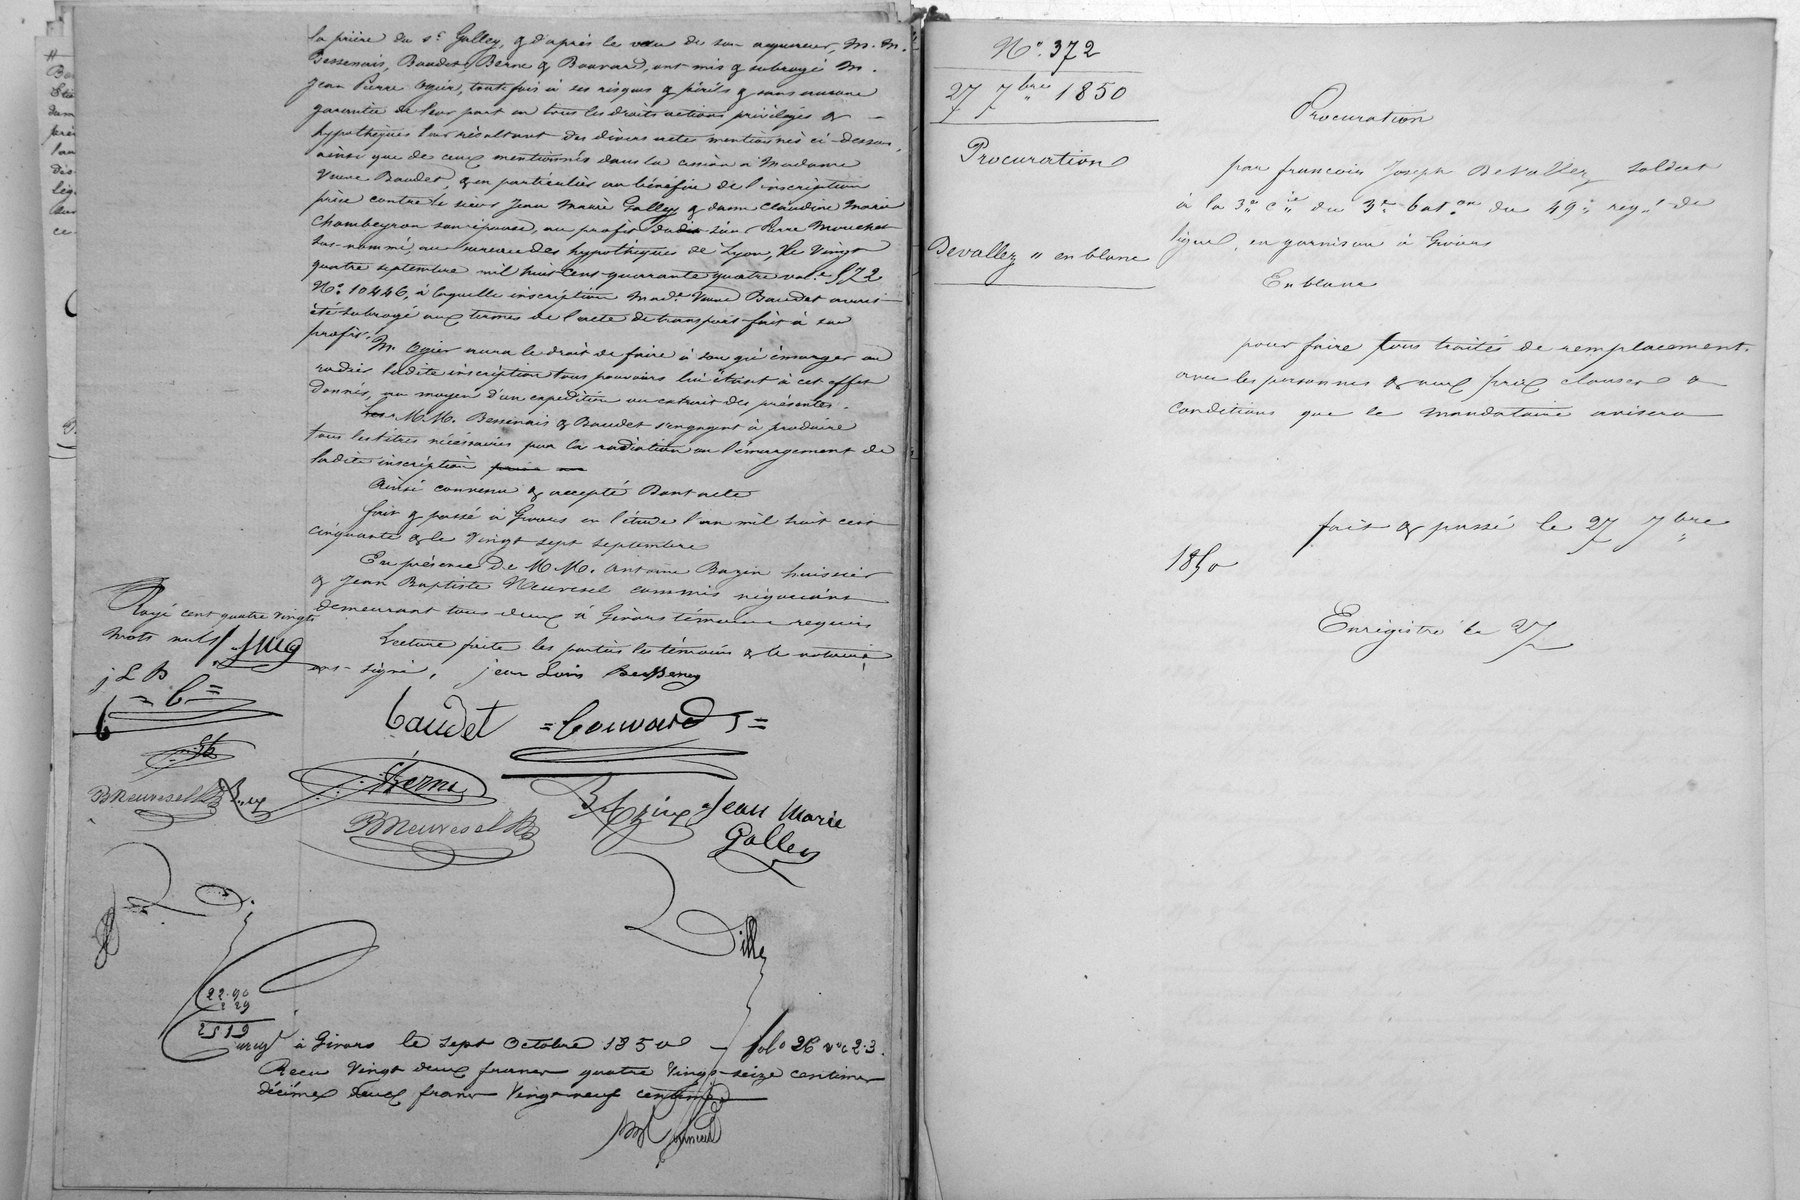 la prière du sr Galley, & d'après le vœu de son acquereur, M.M.
Bessenais, Baudet, Berne & Bouvard, ont mis & subrogé M.
Jean Pierre Ogier, toutefois à ses risques & périls & sans aucune
garantie de leur part en tous les droits actions privilèges &
hypothèques leur résultant des divers actes mentionnés ci-dessus,
ainsi que de ceux mentionnés dans la cession à Madame
Veuve Baudet, & en particulier au bénéfice de l'inscription
prise contre le sieur Jean Marie Galley & dame Claudine Marie
Chambeyron son épouse, au profit dudit sieur Pierre Mouchet
sus-nommé, au bureau des hypothèques de Lyon, le vingt
quatre septembre mil huit cent quarante quatre vol.e 572
N° 10446, à laquelle inscription Made Veuve Baudet avait
été subrogé aux termes de l'acte de transport fait à son
profit.
M. Ogier aura le droit de faire à son gré émarger ou
radier ladite inscription tous pouvoirs lui étant à cet effet
donnés, au moyen d'un expédition ou extrait des présentes.
M.M. Bessenais & Baudet s'engagent à produire
tous les titres nécessaires pour la radiation ou l'émargement de
ladite inscription
Ainsi convenu & accepté Dont acte
fait & passé à Givors en l'étude l'an mil huit cent
cinquante & le vingt sept septembre
En présence de M.M. Antoine Bazin huissier
& Jean Baptiste Neuvesel commis négociant
demeurant tous deux à Givors témoins requis
Lecture faite les parties les témoins & le notaire
ont signé, jean Louis
Rayé cent quatre vingt
mots nuls JMG
j L B
= b =
baudet = bouvard J =
Berne
BNeuvesel
BNeuvesel
Jean Marie
Galley
Dille
22.90
2 29
25 19
à Givors le sept Octobre 1850 – folo 26 vo c 2.3.
Recu vingt deux francs quatre vingt-seize centimes
décimes deux francs vingt neuf centimes
N° 372
27 7bre 1850
Procuration
Devallez " en blanc
Procuration
par francois Joseph Devallez soldat
à la 3e Cie du 3e baton du 49e regt de
ligne, en garnison à Givors
En blanc
pour faire tous traités de remplacement.
avec les personnes & aux prix clauses &
conditions que le mandataire avisera
fait & passé le 27 7bre
1850
Enregistré le 27